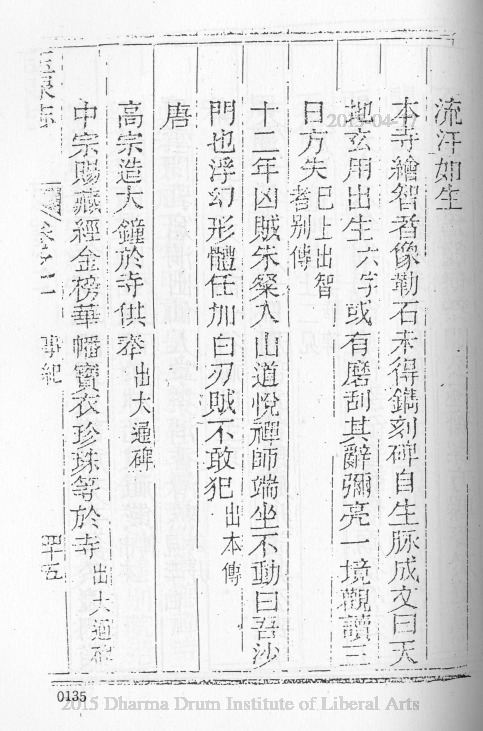 流汗如生
本寺繪智者像勒石未得鐫刻碑自生脉成文曰天
地玄用出生六字或有磨刮其辭彌亮一境觀讀三
日方失已上出智者別傳
十二年凶賊朱粲入山道悅禪師端坐不動曰吾沙
門也浮幻形體任加白刃賊不敢犯出本傳
唐
高宗造大鐘於寺供奉出大通碑
中宗賜藏經金榜華幡寶衣珍珠等於寺出大通碑
玉泉志 卷之一 事紀 四十五
0135
2015 Dharma Drum Institute of Liberal Arts